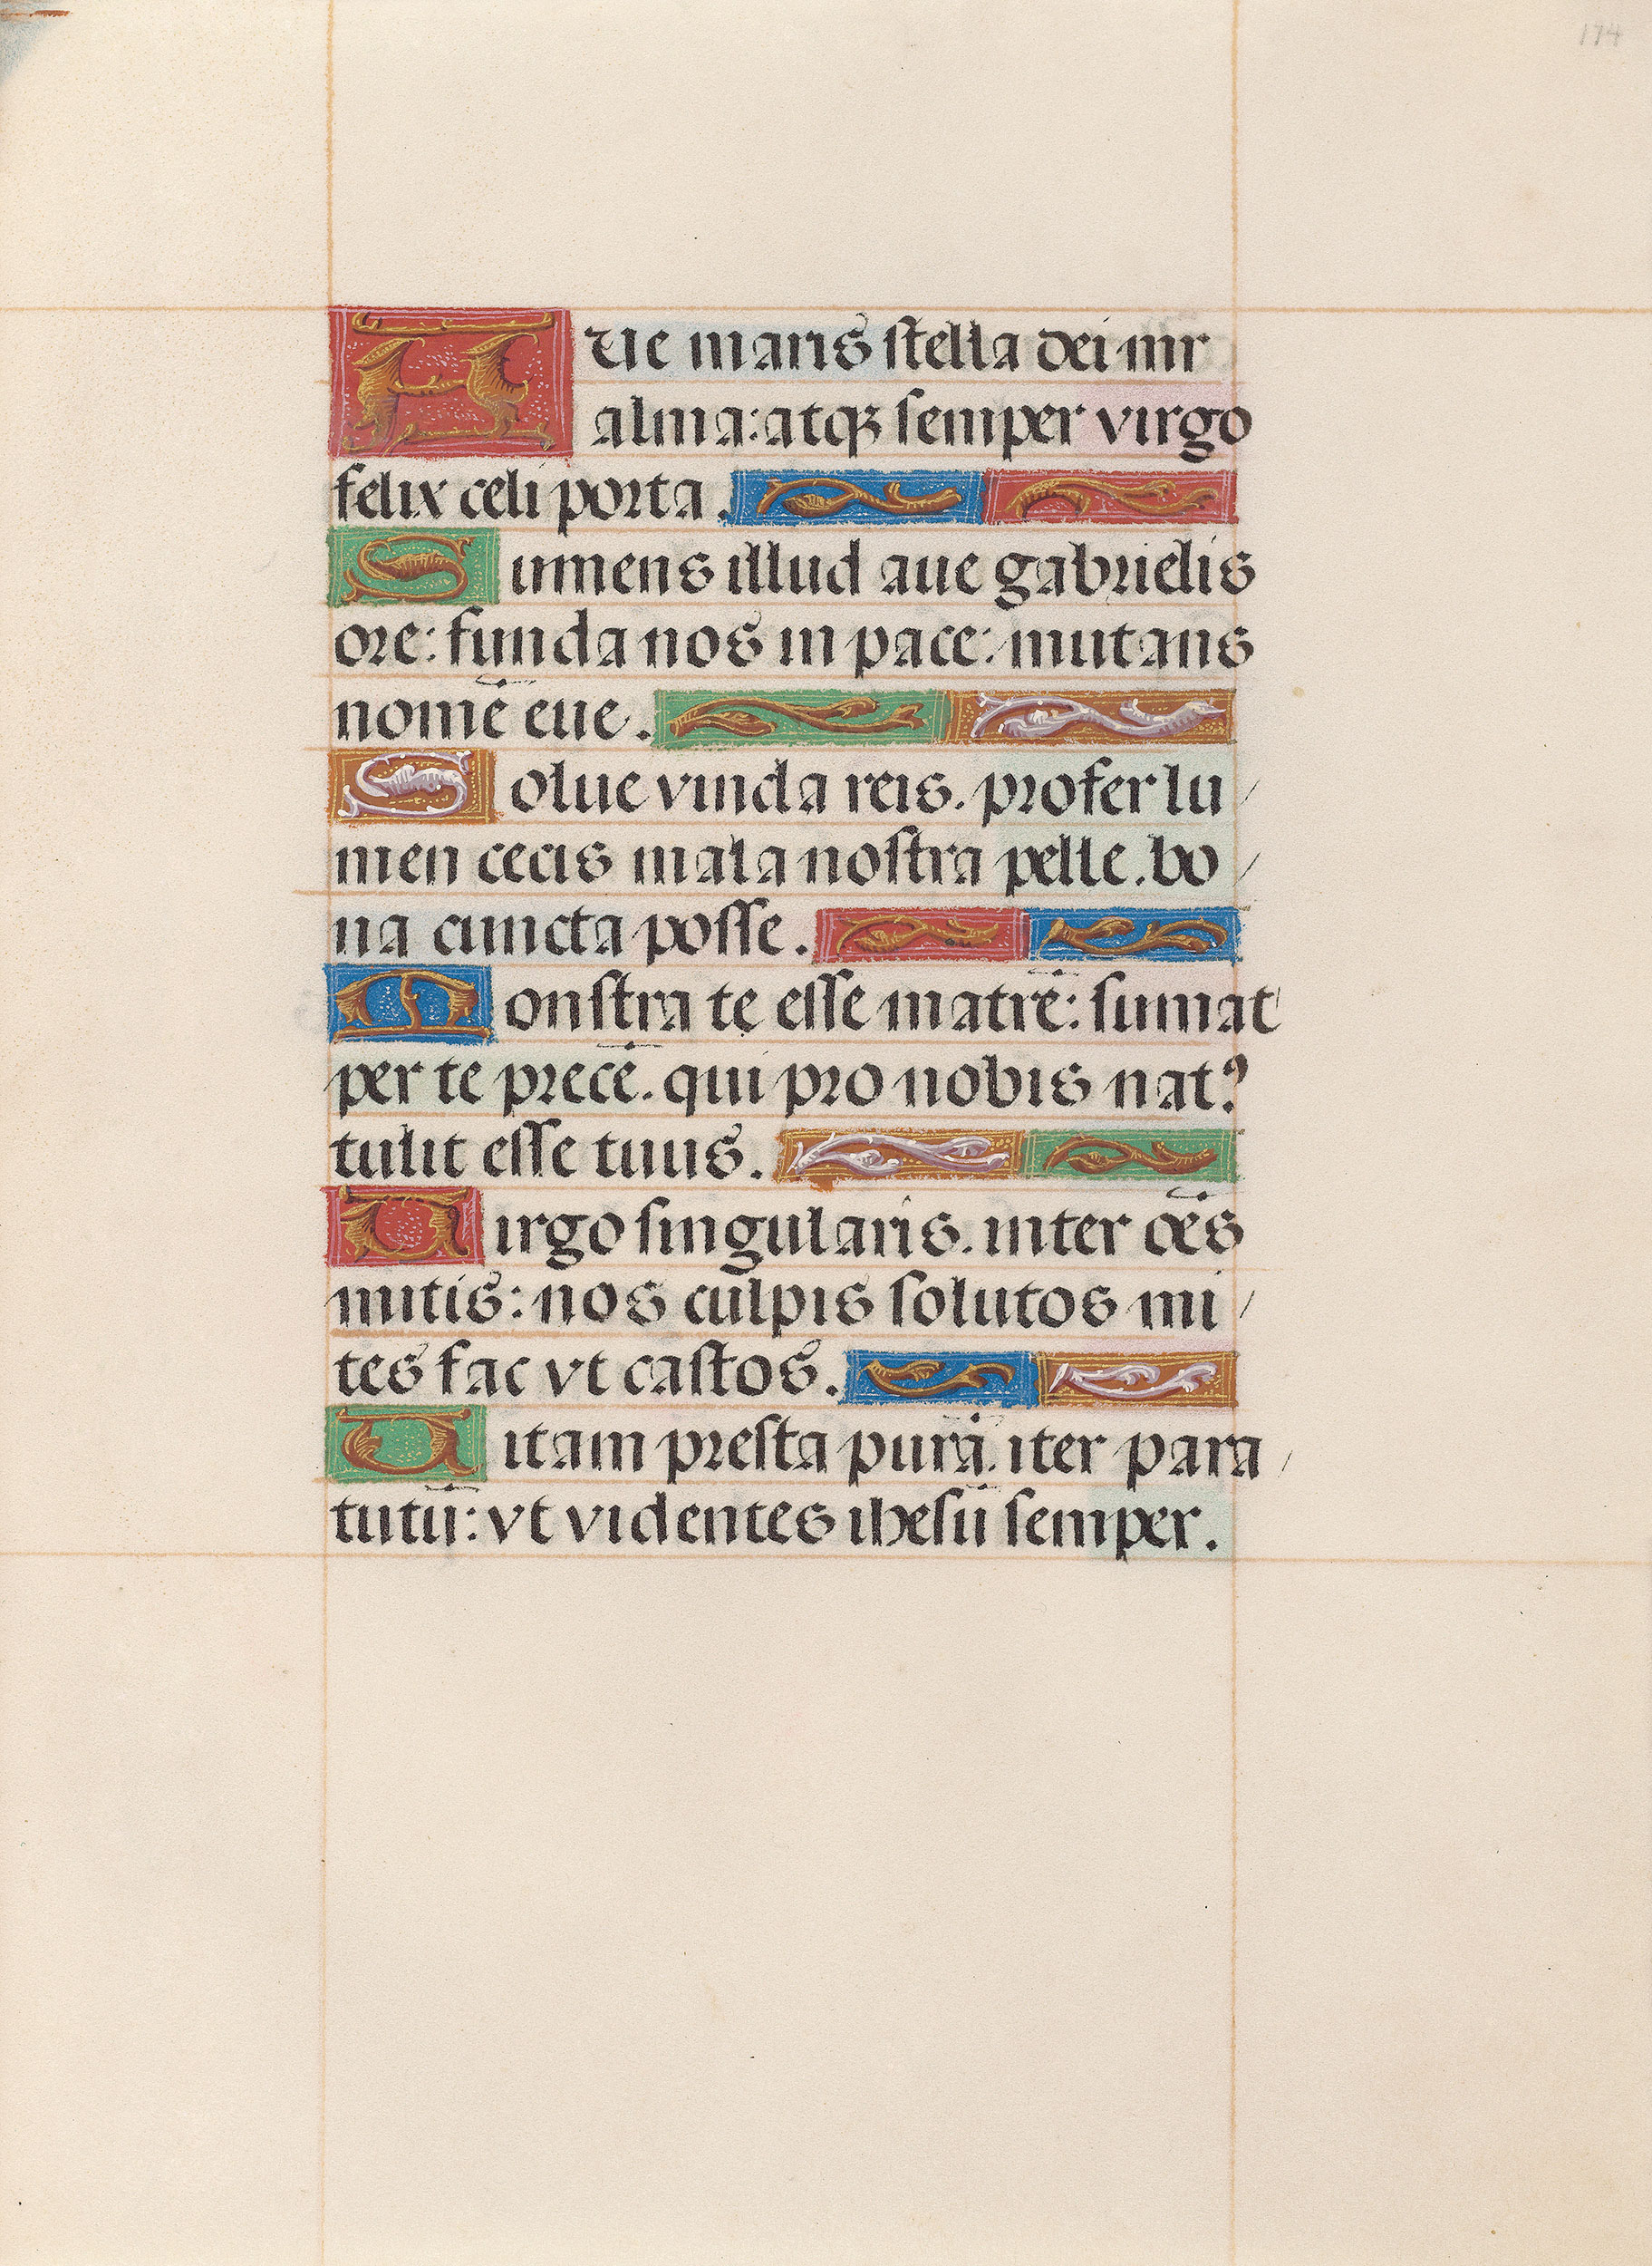 174
AUe maris stella dei mr
alma: atqȝ semper virgo
felix celi porta.
Sumens illud aue gabrielis
ore: funda nos in pace: mutans
nomē eue.
Solue vincla reis. profer lu/
men cecis mala nostra pelle. bo/
na cuncta posse.
Monstra te esse matrē: sumat
per te precē. qui pro nobis natꝰ
tulit esse tuus.
Uirgo singularis. inter oēs
mitis: nos culpis solutos mi/
tes fac vt castos.
Uitam presta purā. iter para/
tutū: vt videntes ihesū semper.